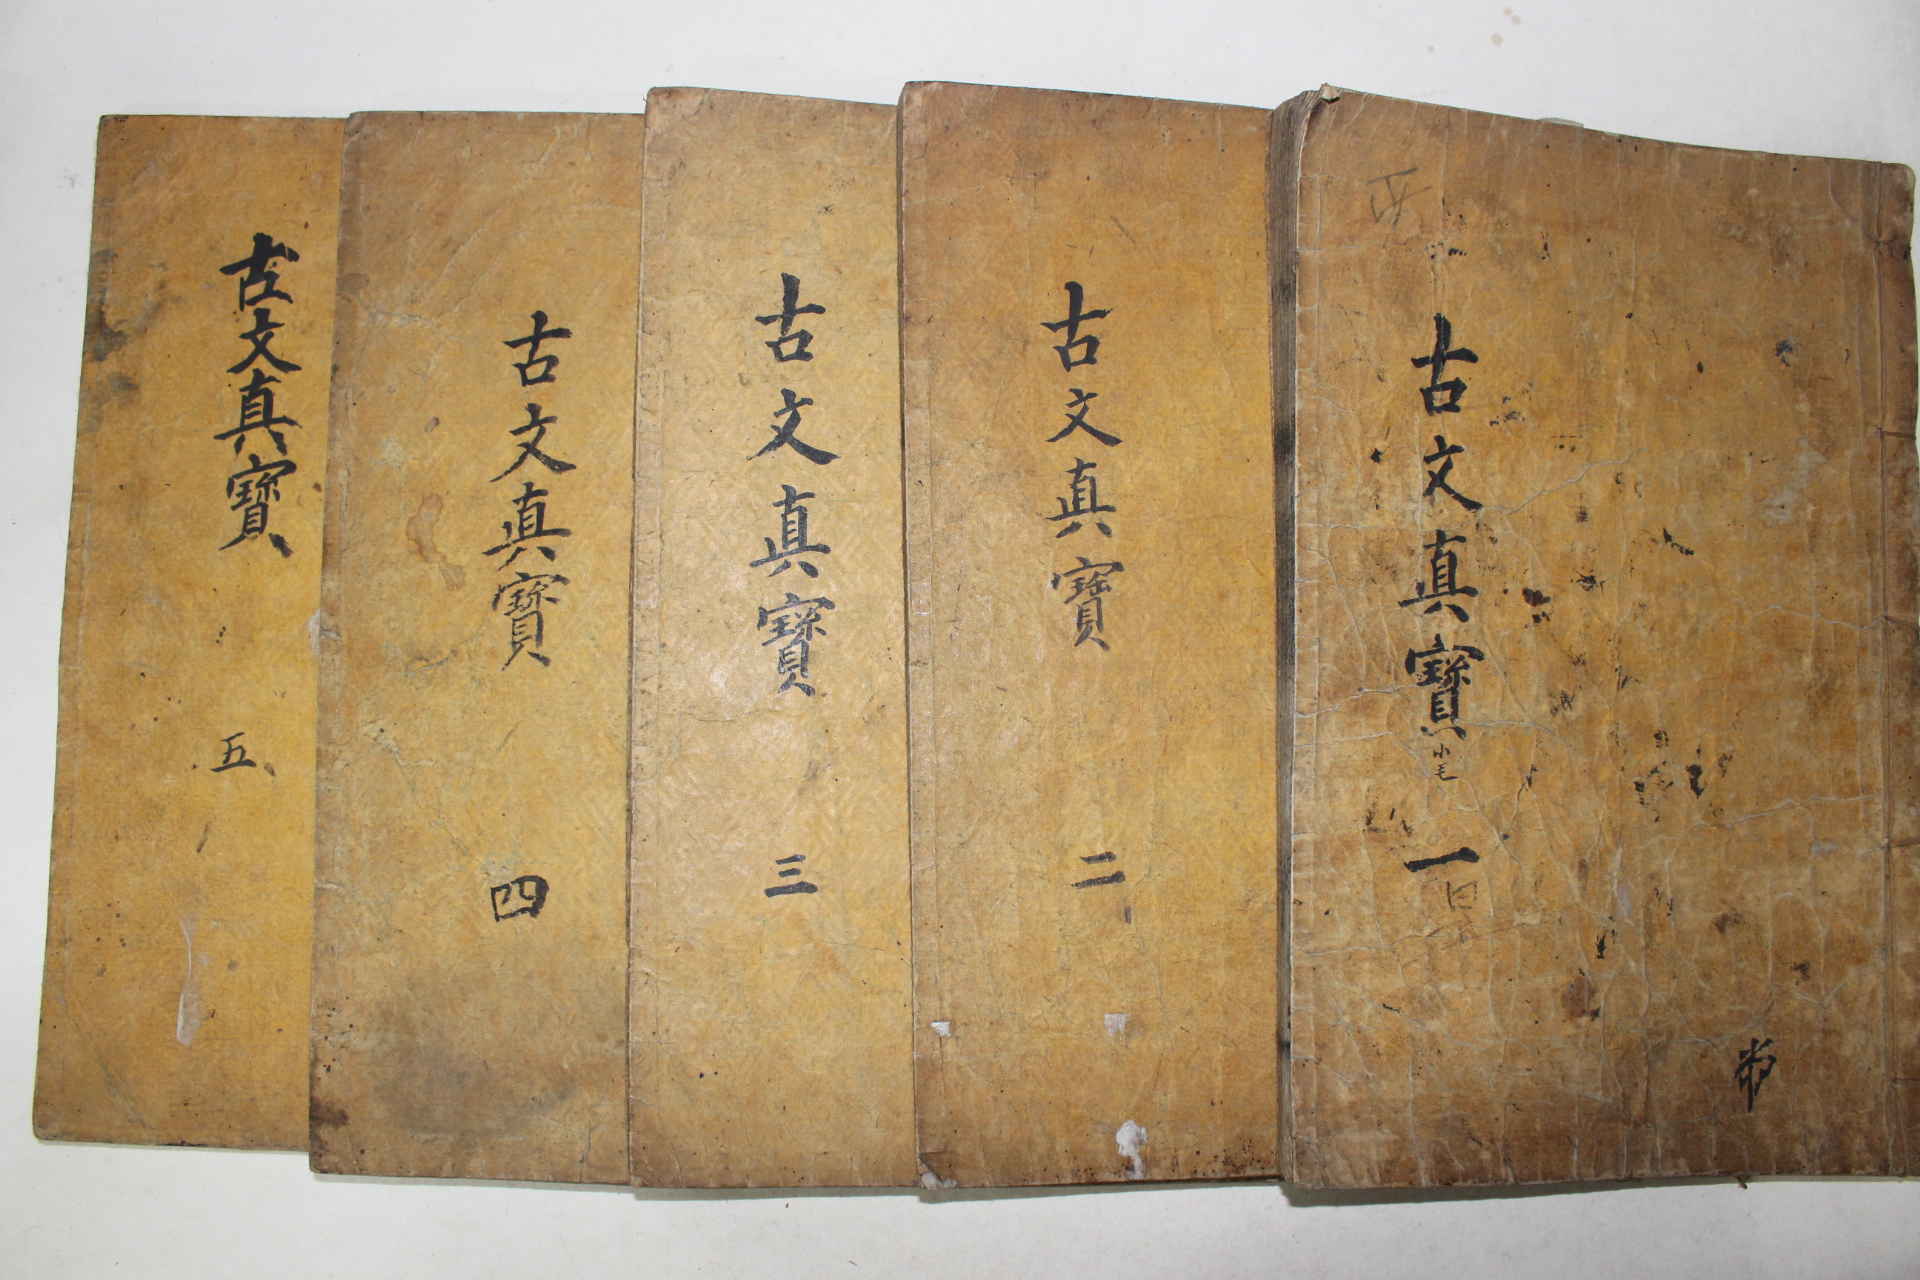 古文真寶 一
小毛
古文真寶 二
古文真寶 三
古文真寶 四
古文真寶 五